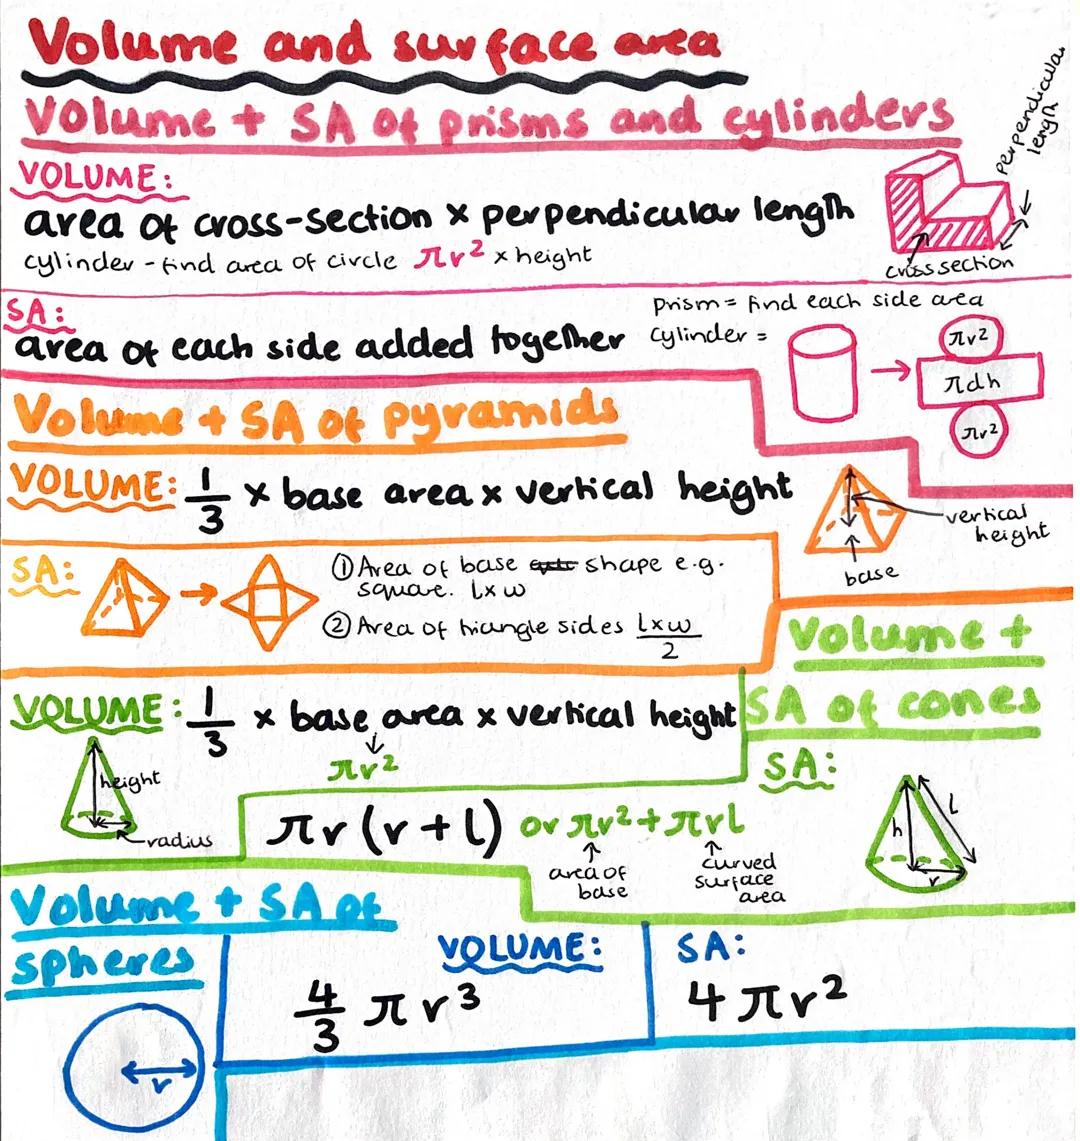 Volume and surface area
Volume + SA of prisms and cylinders
perpendicular
length
VOLUME:
area of cross-section x perpendicular length
cylinder - find area of circle πr² x height
cross section
SA:
area of each side added together
prism = find each side area
cylinder =
πr²
πdh
πr²
Volume + SA of pyramids
VOLUME: 1/3 x base area x vertical height
vertical
height
base
SA:
① Area of base shape e.g.
square. l x w
② Area of triangle sides l x w / 2
Volume +
SA of cones
VOLUME: 1/3 x base area x vertical height
πr²
height
radius
SA:
πr (r + l) or πr² + πrl
area of
base
curved
surface
area
h
l
r
Volume + SA of
spheres
VOLUME:
4/3 πr³
SA:
4πr²
r